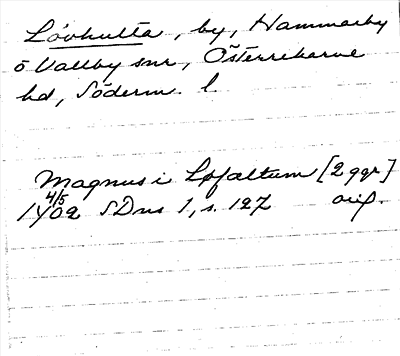 Lövhulta, by, Hammarby
o Vallby snr, Österrekarne
hd, Söderm. l.
Magnus i Løfaltum [2 ggr]
1402 4/5 SDns 1, s. 127 orig.